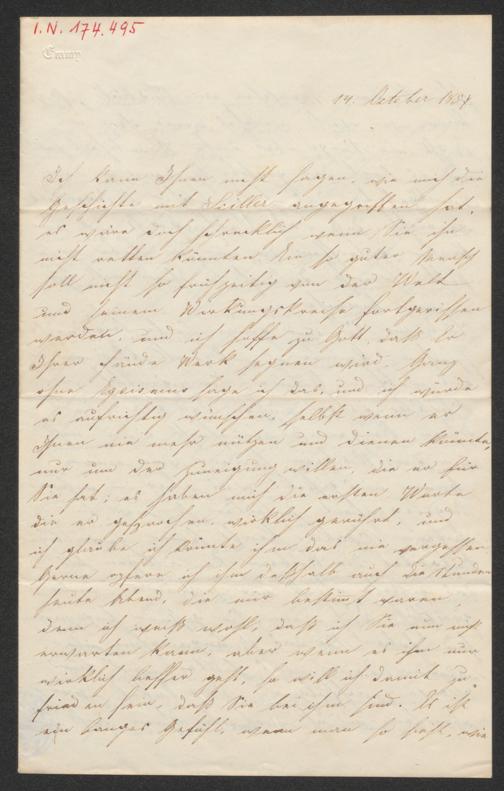 I.N. 174.495
14. October 1857
Ich kann Ihnen nicht sagen, wie mich die
Geschichte mit Stiller angegriffen hat,
es wäre doch schrecklich wenn Sie ihn
nicht retten könnten. Ein so guter Mensch
soll nicht so frühzeitig von der Welt
und seinem Wirkungskreise fortgerissen
werden, und ich hoffe zu Gott, daß Er
Ihrer Hände Werk segnen wird. Ganz
ohne Egoismus sage ich das, und ich würde
es aufrichtig wünschen, selbst wenn er
Ihnen nie mehr nützen und dienen könnte,
nur um der Zuneigung willen, die er für
Sie hat; es haben mich die ersten Worte
die er gesprochen, wirklich gerührt, und
ich glaube ich könnte ihm das nie vergessen.
Gerne opfere ich ihm deßhalb auch die Stunden
heute Abend, die mir bestimmt waren,
denn ich weiß wohl, daß ich Sie nun nicht
erwarten kann, aber wenn es ihm nur
wirklich besser geht, so will ich damit zu
frieden sein, daß Sie bei ihm sind. Es ist
ein banges Gefühl, wenn man so sieht, wie